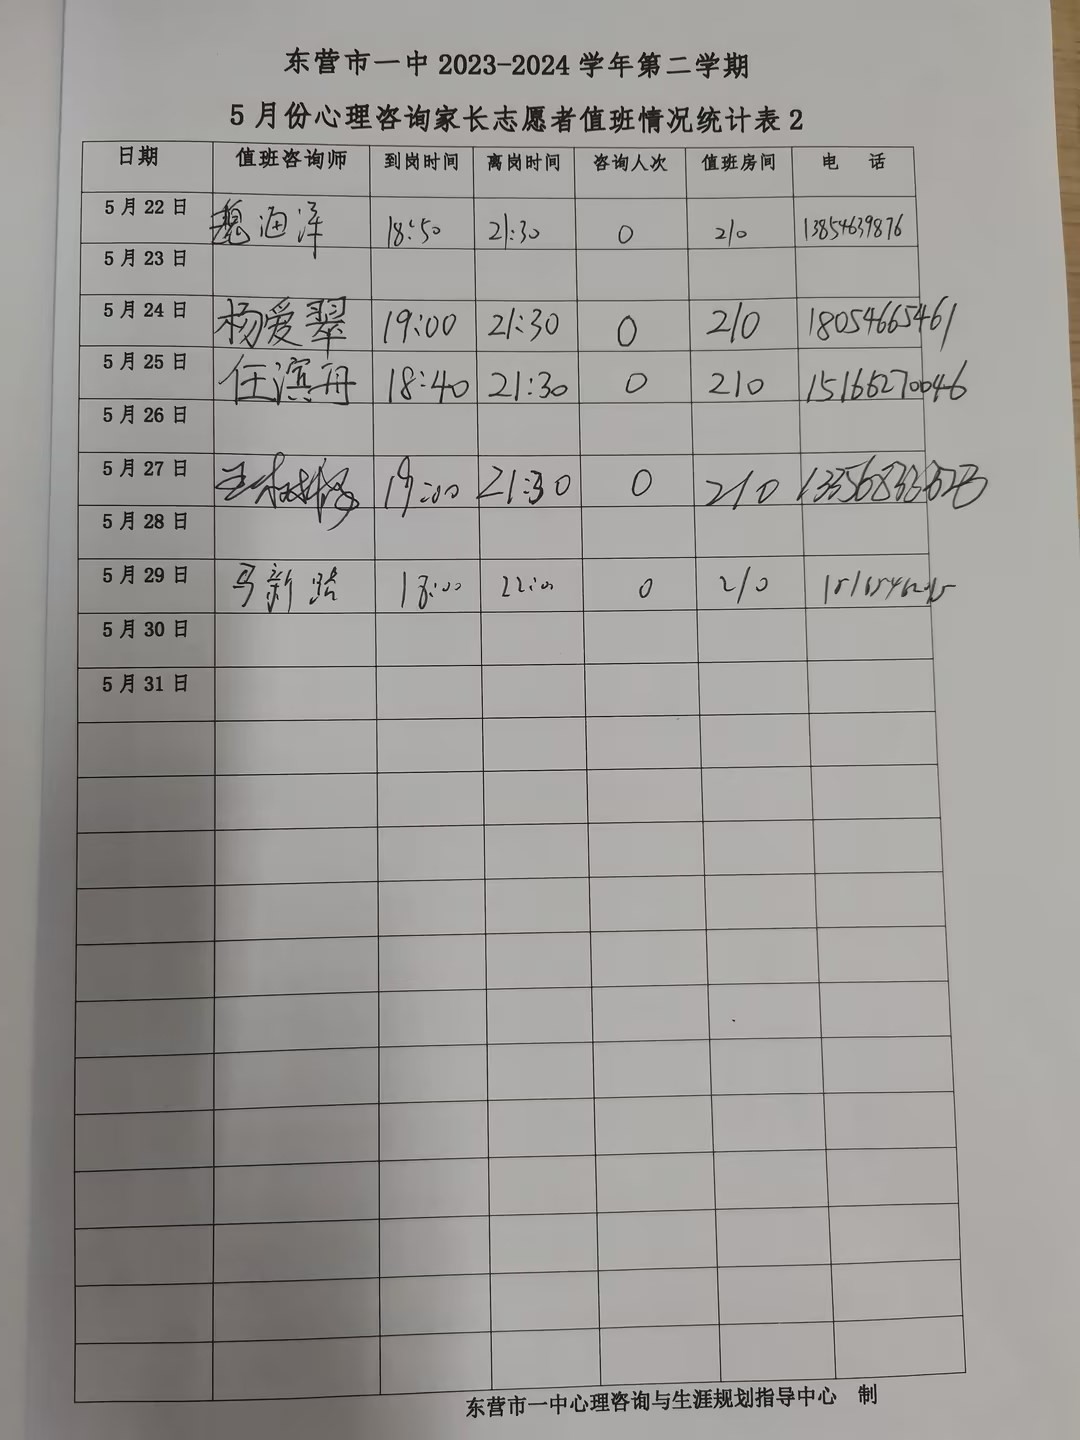 东营市一中 2023-2024 学年第二学期
5 月份心理咨询家长志愿者值班情况统计表 2
日期 值班咨询师 到岗时间 离岗时间 咨询人次 值班房间 电 话
5 月 22 日 魏海泽 18:50 21:30 0 210 13854639876
5 月 23 日
5 月 24 日 杨爱翠 19:00 21:30 0 210 18054665461
5 月 25 日 任滨丹 18:40 21:30 0 210 15166270046
5 月 26 日
5 月 27 日 王 19:00 21:30 0 210
5 月 28 日
5 月 29 日 马新 18:00 22:00 0 210
5 月 30 日
5 月 31 日
东营市一中心理咨询与生涯规划指导中心 制